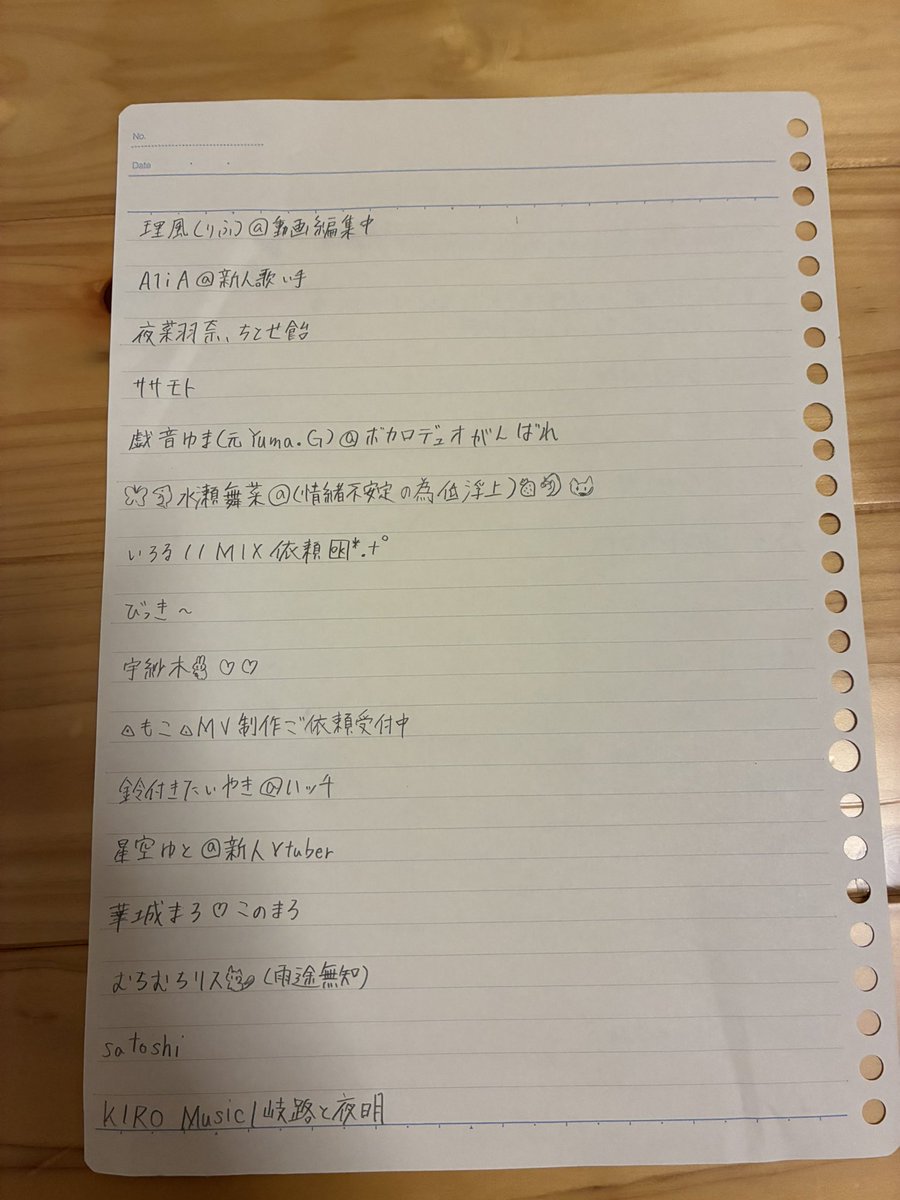 No.
Date
理風(りふ)@動画編集中
AliA@新人歌い手
夜菜羽奈、ちとせ飴
ササモト
戯音ゆま(元Yuma.G)@ボカロデュオがんばれ
水瀬舞菜@(情緒不安定の為低浮上)
いろる // MIX依頼🆗*.+°
びっき~
宇紗木🐰♡♡
🍙もこ🍙MV制作ご依頼受付中
鈴付きたいやき@ハッチ
星空ゆと@新人Vtuber
華城まろ♡このまろ
むちむちリス🐿(雨途無知)
satoshi
KIRO Music/岐路と夜明